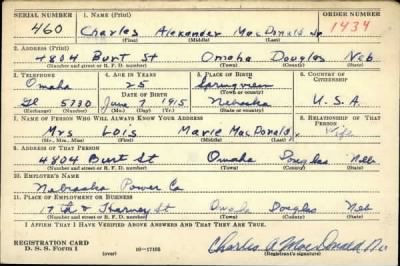 SERIAL NUMBER 1. NAME (Print) ORDER NUMBER
460 Charles Alexander MacDonald Jr 1434
(First) (Middle) (Last)
2. ADDRESS (Print)
4804 Burt St Omaha Douglas Neb
(Number and street or R. F. D. number) (Town) (County) (State)
3. TELEPHONE 4. AGE IN YEARS 5. PLACE OF BIRTH 6. COUNTRY OF CITIZENSHIP
Omaha 25 Springview
DATE OF BIRTH (Town or county)
Gl 5730 June 7 1915 Nebraska U.S.A.
(Exchange) (Number) (Mo.) (Day) (Yr.) (State or country)
7. NAME OF PERSON WHO WILL ALWAYS KNOW YOUR ADDRESS 8. RELATIONSHIP OF THAT PERSON
Mrs Lois Marie MacDonald Wife
(Mr., Mrs., Miss) (First) (Middle) (Last)
9. ADDRESS OF THAT PERSON
4804 Burt St Omaha Douglas Neb
(Number and street or R. F. D. number) (Town) (County) (State)
10. EMPLOYER'S NAME
Nebraska Power Co
11. PLACE OF EMPLOYMENT OR BUSINESS
17th & Harney St Omaha Douglas Neb
(Number and street or R. F. D. number) (Town) (County) (State)
I AFFIRM THAT I HAVE VERIFIED ABOVE ANSWERS AND THAT THEY ARE TRUE.
REGISTRATION CARD Charles A MacDonald Jr
D. S. S. Form 1 (over) 16—17105 (Registrant's signature)